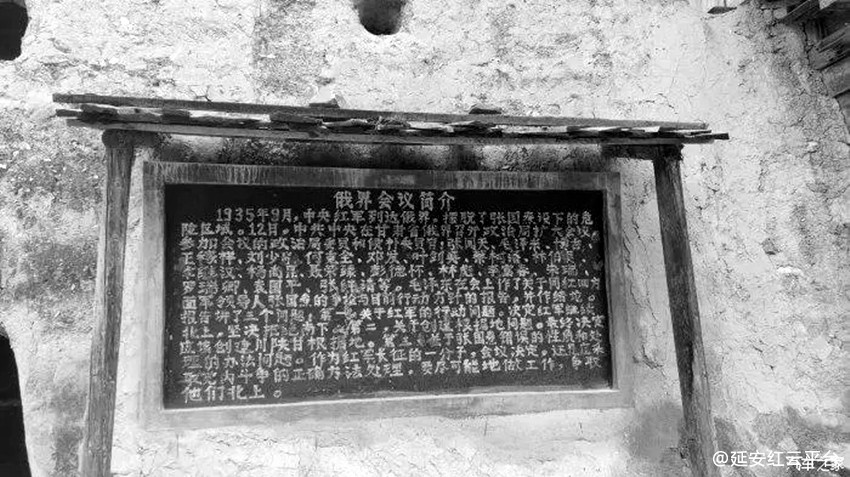 俄界会议简介
1935年9月,中央红军到达俄界,摆脱了张国焘设下的危
险区域。12日,中共中央在甘肃省俄界召开政治局扩大会议。
参加会议的政治局委员和候补委员有:张闻天、毛泽东、
王稼祥、刘少奇、邓发、叶剑英、林伯渠、
杨尚昆、聂荣臻、彭德怀、林彪、李富春、
罗瑞卿、袁国平、张纯清等。毛泽东在会上作了关于同红四方
面军领导人张国焘的争论与目前行动方针的报告,并作结论。
报告讲了三个问题,第一,关于红军的行动问题。决定红军继续
北上,坚决南下。第二,关于创建根据地问题。最终决定
应该创建川陕甘根据地。第三,关于张国焘错误的性质和处
理的办法问题。作为红军长征的一分子,会议决定,
党内斗争的正确方法处理,要尽可能地做工作,争取
他们北上。
@延安红云平台
汽车之家